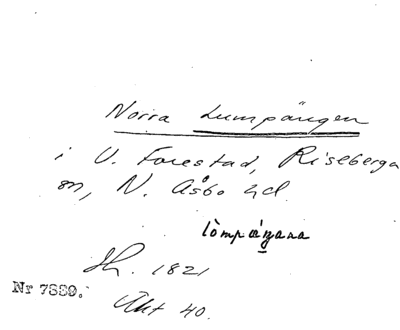 Norra Lumpängen
i V. Forestad, Riseberga
sn, N. Åsbo hd.
lòmpæŋana
Sh. 1821
Nr 7889.
Akt 40.